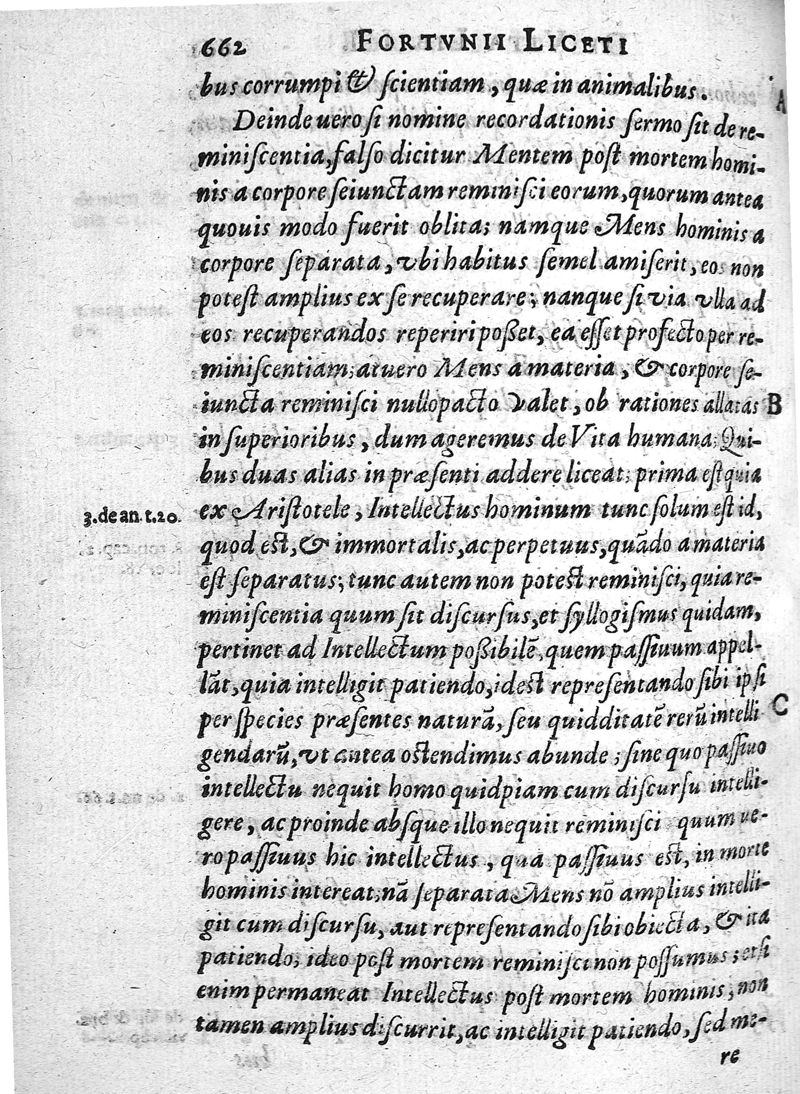 662 FORTVNII LICETI
bus corrumpi & ſcientiam, quæ in animalibus.
A
Deinde uero ſi nomine recordationis ſermo ſit de re-
miniſcentia, falſo dicitur Mentem poſt mortem homi-
nis a corpore ſeiunctam reminiſci eorum, quorum antea
quouis modo fuerit oblita; namque Mens hominis a
corpore ſeparata, vbi habitus ſemel amiſerit, eos non
poteſt amplius ex ſe recuperare; nanque ſi via vlla ad
eos recuperandos reperiri poßet, ea eſſet profecto per re-
miniſcentiam; at uero Mens a materia, & corpore ſe-
iuncta reminiſci nullo pacto valet, ob rationes allatas B
in ſuperioribus, dum ageremus de Vita humana; Qui-
bus duas alias in præſenti addere liceat; prima eſt quia
3. de an. t. 20. ex Ariſtotele, Intellectus hominum tunc ſolum eſt id,
quod eſt, & immortalis, ac perpetuus, quādo a materia
eſt ſeparatus; tunc autem non poteſt reminiſci, quia re-
miniſcentia quum ſit diſcurſus, et ſyllogiſmus quidam,
pertinet ad Intellectum poßibilē, quem paſſiuum appel-
lāt, quia intelligit patiendo, ideſt repreſentando ſibi ipſi
per ſpecies præſentes naturā, ſeu quidditatē rerū intelli C
gendarū, vt antea oſtendimus abunde; ſine quo paſſiuo
intellectu nequit homo quidpiam cum diſcurſu intelli-
gere, ac proinde abſque illo nequit reminiſci quum ue-
ro paſſiuus hic intellectus, qua paſſiuus eſt, in morte
hominis intereat, nā ſeparata Mens nō amplius intelli-
git cum diſcurſu, aut repreſentando ſibi obiecta, & ita
patiendo; ideo poſt mortem reminiſci non poſſumus; etſi
enim permaneat Intellectus poſt mortem hominis, non
tamen amplius diſcurrit, ac intelligit patiendo, ſed me-
re